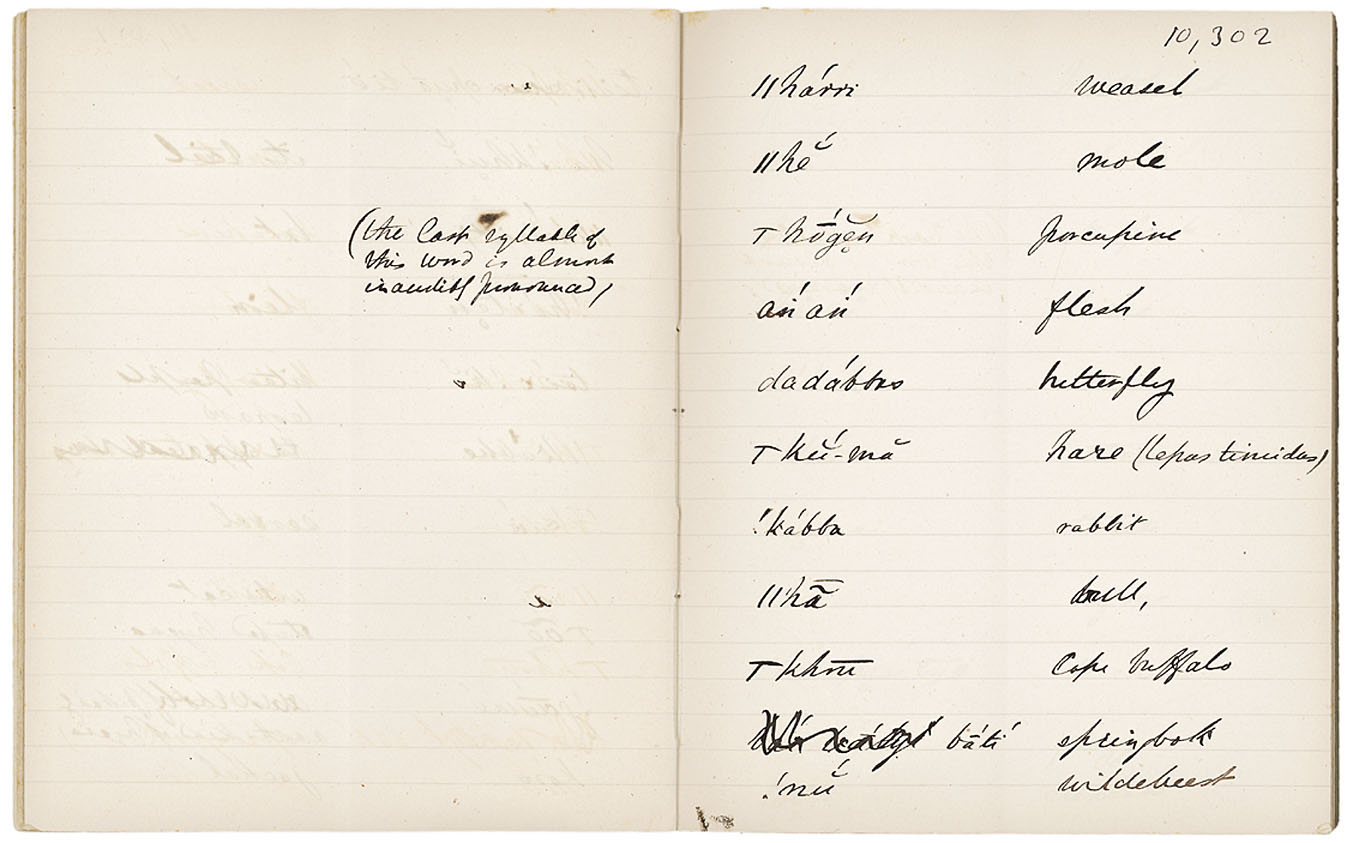 (the last syllable of
this word is almost
inaudibly pronounced)
10,302
ǁhárri weasel
ǁhĕ́ mole
T hṓgĕ̥n porcupine
aṅ́ aṅ́ flesh
dadábbas butterfly
T kŭ́-mă hare (lepus timidus)
!kábba rabbit
ǁhā̃ bull,
T khou Cape buffalo
bātí springbok
!nŭ́ wildebeest